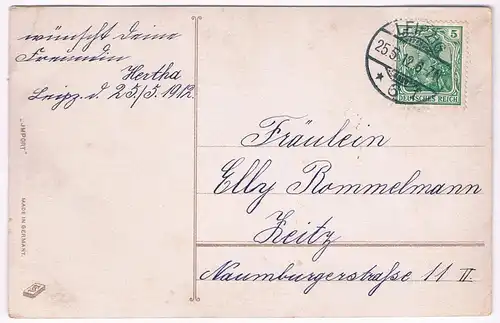 wünscht deine
Freundin
Hertha
Leipz. d. 25/5. 1912.
LEIPZIG
25.5.12.
5
DEUTSCHES REICH
Fräulein
Elly Rommelmann
Zeitz
Naumburgerstraße 11 II.
„IMPORT"
MADE IN GERMANY.